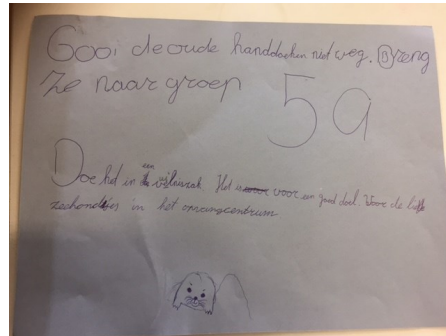 Gooi de oude handdoeken niet weg. Breng
ze naar groep 5a
Doe het in een vuilniszak. Het is voor een goed doel. Voor de
zeehondjes in het opvangcentrum